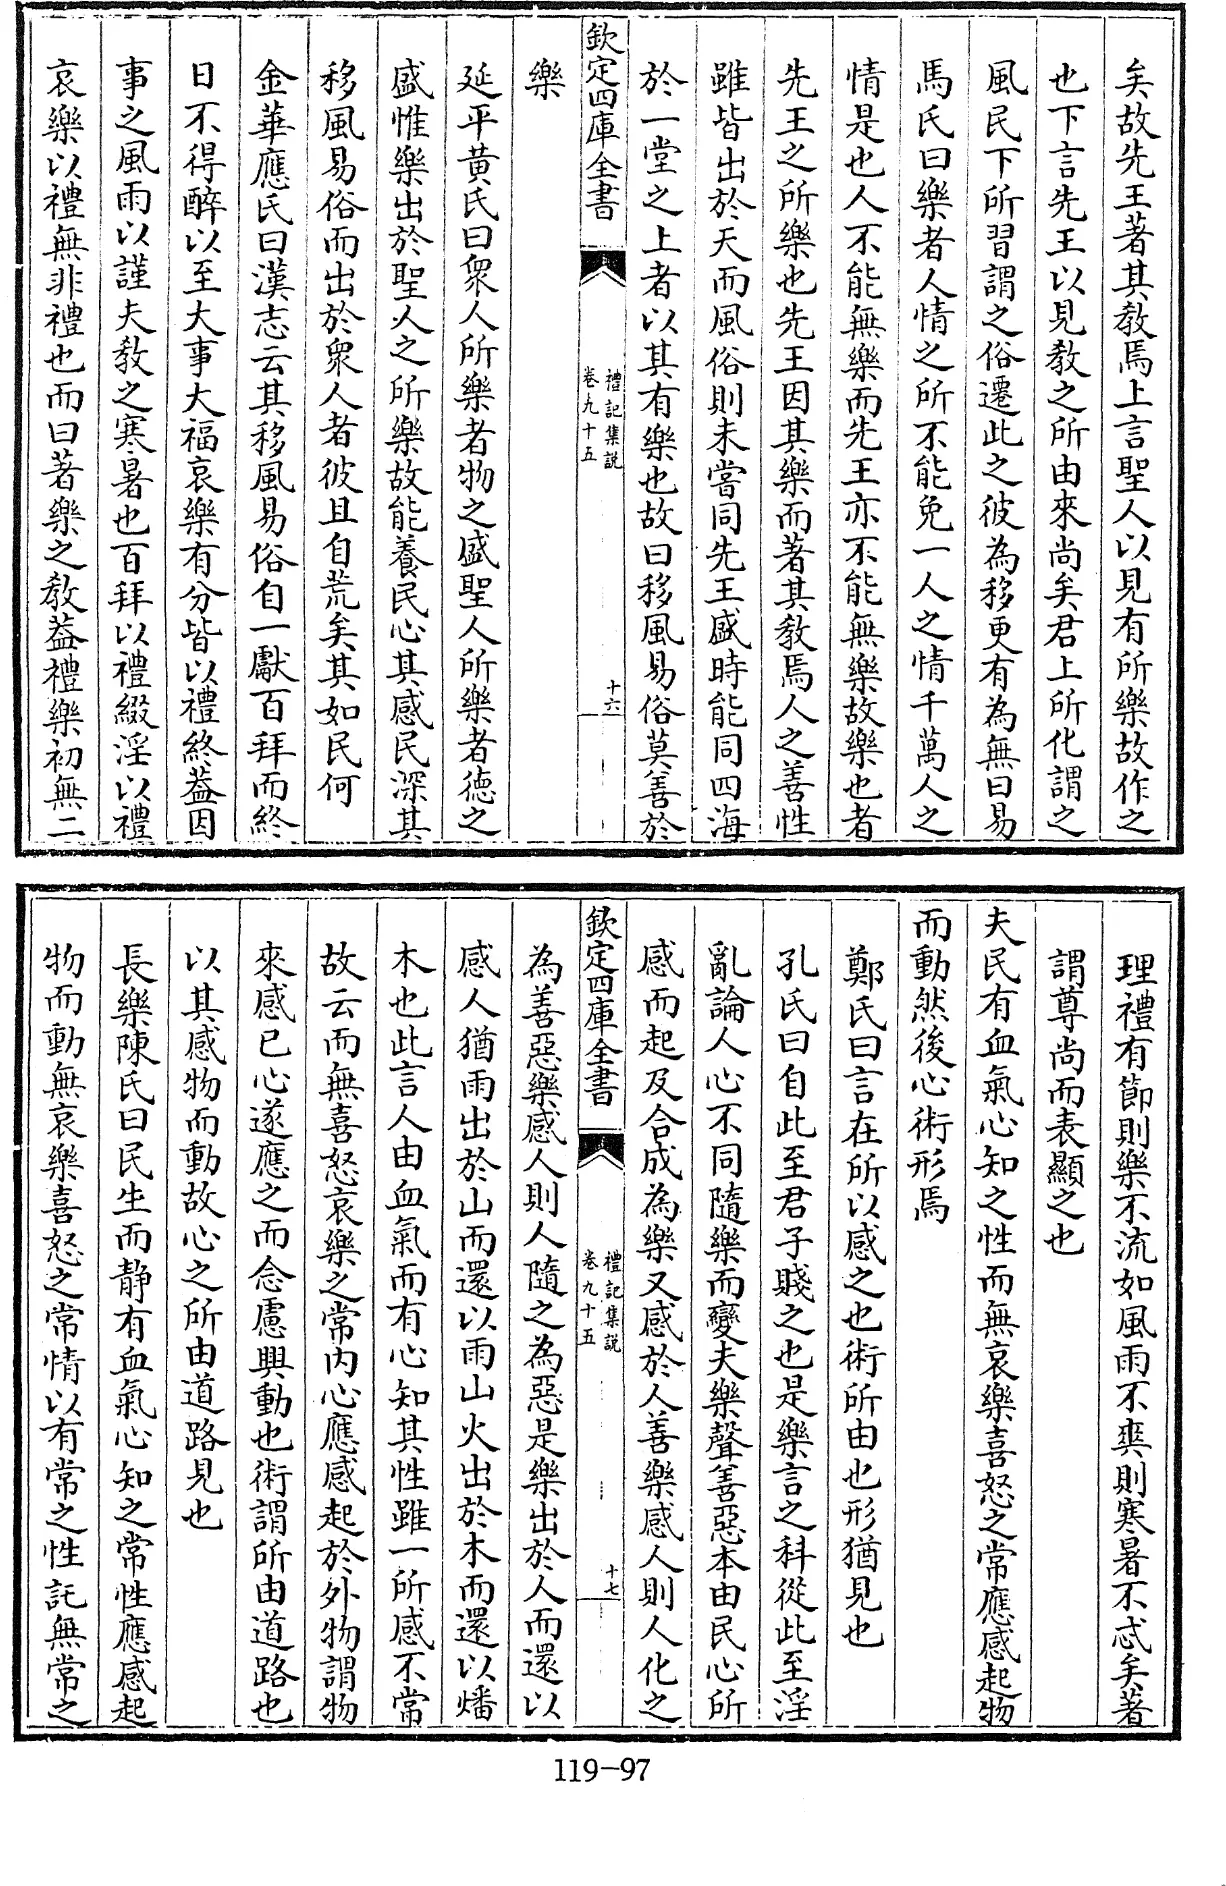 矣故先王著其敎焉上言聖人以見有所樂故作之
也下言先王以見敎之所由來尚矣君上所化謂之
風民下所習謂之俗遷此之彼為移更有為無曰易
馬氏曰樂者人情之所不能免一人之情千萬人之
情是也人不能無樂而先王亦不能無樂故樂也者
先王之所樂也先王因其樂而著其敎焉人之善性
雖皆出於天而風俗則未嘗同先王盛時能同四海
於一堂之上者以其有樂也故曰移風易俗莫善於
欽定四庫全書
禮記集說
卷九十五
十六
樂
延平黄氏曰衆人所樂者物之盛聖人所樂者徳之
盛惟樂出於聖人之所樂故能養民心其感民深其
移風易俗而出於衆人者彼且自荒矣其如民何
金華應氏曰漢志云其移風易俗自一獻百拜而終
日不得醉以至大事大福哀樂有分皆以禮終葢因
事之風雨以謹夫敎之寒暑也百拜以禮綴淫以禮
哀樂以禮無非禮也而曰著樂之敎葢禮樂初無二
理禮有節則樂不流如風雨不爽則寒暑不忒矣著
謂尊尚而表顯之也
夫民有血氣心知之性而無哀樂喜怒之常應感起物
而動然後心術形焉
鄭氏曰言在所以感之也術所由也形猶見也
孔氏曰自此至君子賤之也是樂言之科從此至淫
亂論人心不同隨樂而變夫樂聲善惡本由民心所
感而起及合成為樂又感於人善樂感人則人化之
欽定四庫全書
禮記集說
卷九十五
十七
為善惡樂感人則人隨之為惡是樂出於人而還以
感人猶雨出於山而還以雨山火出於木而還以燔
木也此言人由血氣而有心知其性雖一所感不常
故云而無喜怒哀樂之常内心應感起於外物謂物
來感已心遂應之而念慮興動也術謂所由道路也
以其感物而動故心之所由道路見也
長樂陳氏曰民生而静有血氣心知之常性應感起
物而動無哀樂喜怒之常情以有常之性託無常之
119-97